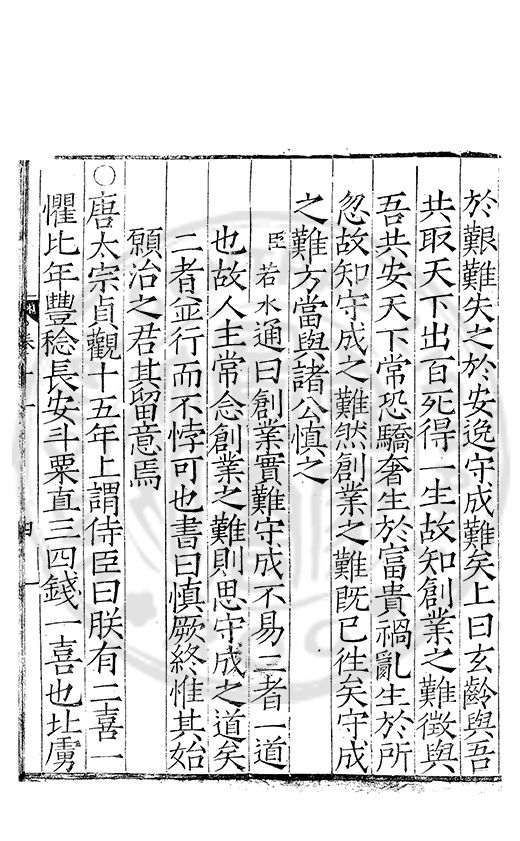 於艱難失之於安逸守成難矣上曰玄齡與吾
共取天下出百死得一生故知創業之難徵與
吾共安天下常恐驕奢生於富貴禍亂生於所
忽故知守成之難然創業之難既已徃矣守成
之難方當與諸公慎之
臣若水通曰創業實難守成不易二者一道
也故人主常念創業之難則思守成之道矣
二者並行而不悖可也書曰慎厥終惟其始
願治之君其留意焉
○唐太宗貞觀十五年上謂侍臣曰朕有二喜一
懼比年豐稔長安斗粟直三四錢一喜也北虜